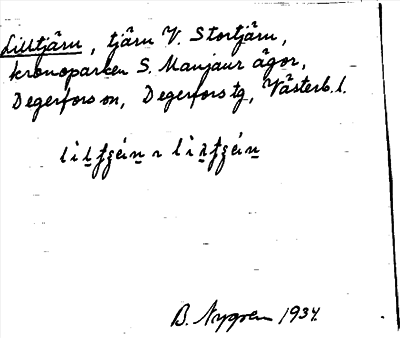 Lilltjärn, tjärn V. Stortjärn,
kronoparken S. Manjaur ägor,
Degerfors sn, Degerfors tg, Västerb. l.
B. Nygren 1934.